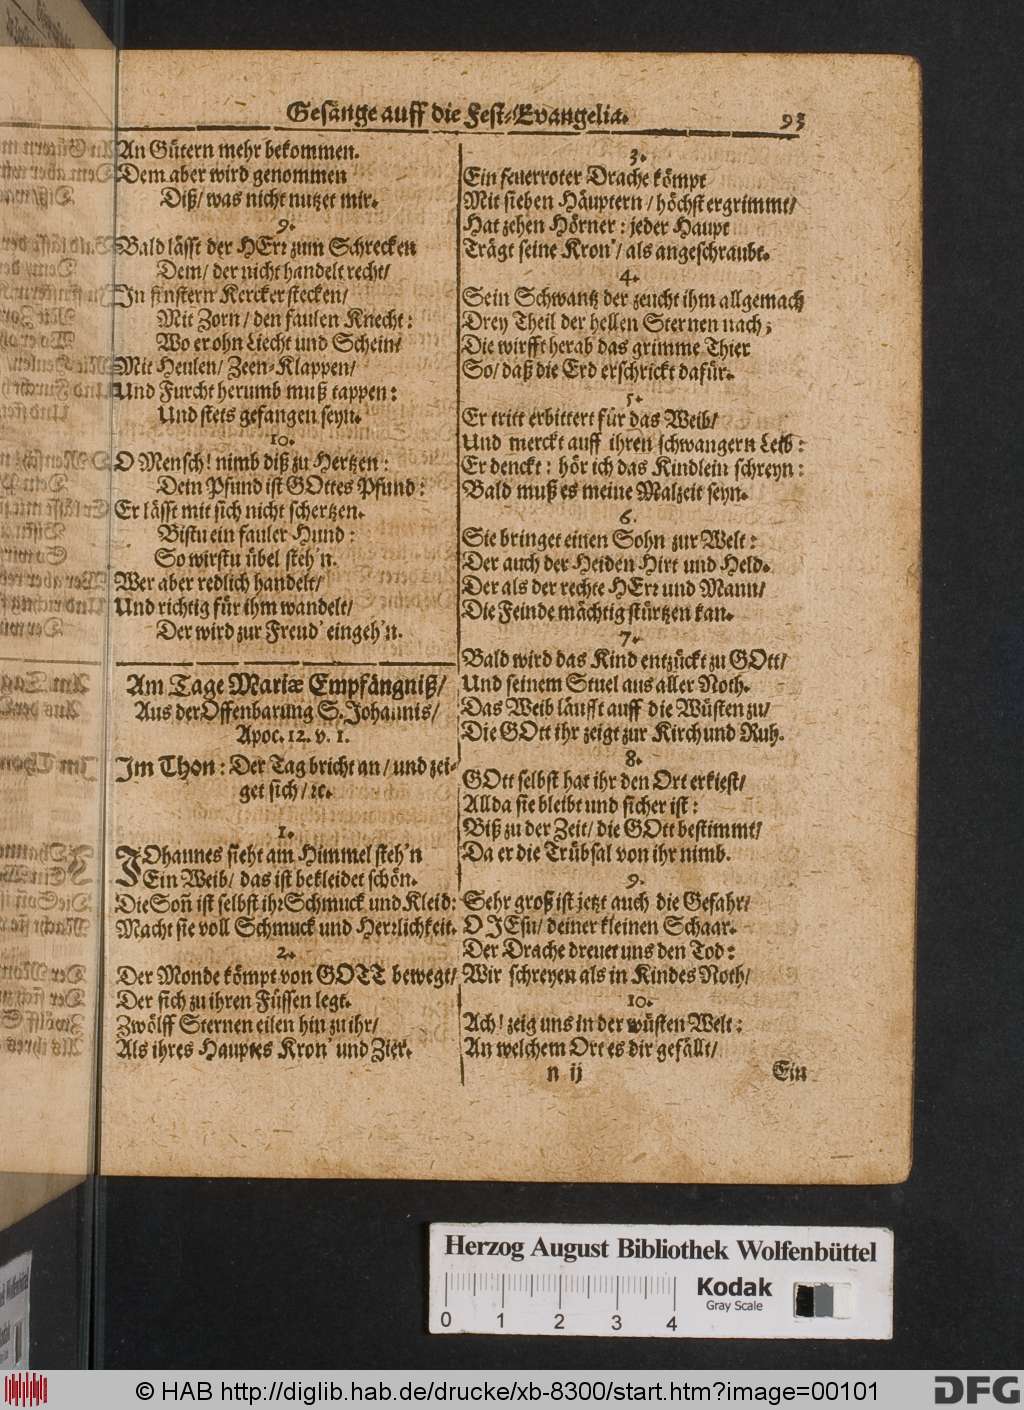 Gesänge auff die Fest-Evangelia.
93
An Gütern mehr bekommen.
Dem aber wird genommen
Diß/ was nicht nutzet mir.
9.
Bald lässt der HErr zum Schrecken
Dem/ der nicht handelt recht/
In finstern Kercker stecken/
Mit Zorn/ den faulen Knecht:
Wo er ohn Liecht und Schein/
Mit Heulen/ Zeen-Klappen/
Und Furcht herumb muß tappen:
Und stets gefangen seyn.
10.
O Mensch! nimb diß zu Hertzen:
Dein Pfund ist GOttes Pfund:
Er lässt mit sich nicht schertzen.
Bistu ein fauler Hund:
So wirstu übel steh'n.
Wer aber redlich handelt/
Und richtig für ihm wandelt/
Der wird zur Freud' eingeh'n.
Am Tage Mariæ Empfängniß/
Aus der Offenbarung S. Johannis/
Apoc. 12. v. 1.
Im Thon: Der Tag bricht an/ und zei-
get sich/ ꝛc.
1.
JOhannes sieht am Himmel steh'n
Ein Weib/ das ist bekleidet schön.
Die Soñ ist selbst ihr Schmuck und Kleid:
Macht sie voll Schmuck und Herrlichkeit.
2.
Der Monde kömpt von GOTT bewegt/
Der sich zu ihren Füssen legt.
Zwölff Sternen eilen hin zu ihr/
Als ihres Hauptes Kron' und Zier.
3.
Ein feuerroter Drache kömpt
Mit sieben Häuptern/ höchst ergrimmt/
Hat zehen Hörner: jeder Haupt
Trägt seine Kron'/ als angeschraubt.
4.
Sein Schwantz der zeucht ihm allgemach
Drey Theil der hellen Sternen nach;
Die wirfft herab das grimme Thier
So/ daß die Erd erschrickt dafür.
5.
Er tritt erbittert für das Weib/
Und merckt auff ihren schwangern Leib:
Er denckt: hör ich das Kindlein schreyn:
Bald muß es meine Malzeit seyn.
6.
Sie bringet einen Sohn zur Welt:
Der auch der Heiden Hirt und Held.
Der als der rechte HErr und Mann/
Die Feinde mächtig stürtzen kan.
7.
Bald wird das Kind entzückt zu GOtt/
Und seinem Stuel aus aller Noth.
Das Weib läufft auff die Wüsten zu/
Die GOtt ihr zeigt zur Kirch und Ruh.
8.
GOtt selbst hat ihr den Ort erkiest/
Allda sie bleibt und sicher ist:
Biß zu der Zeit/ die GOtt bestimmt/
Da er die Trübsal von ihr nimb.
9.
Sehr groß ist jetzt auch die Gefahr/
O JEsu/ deiner kleinen Schaar.
Der Drache dreuet uns den Tod:
Wir schreyen als in Kindes Noth/
10.
Ach! zeig uns in der wüsten Welt:
An welchem Ort es dir gefällt/
n ij
Ein
Herzog August Bibliothek Wolfenbüttel
Kodak
Gray Scale
0 1 2 3 4
© HAB http://diglib.hab.de/drucke/xb-8300/start.htm?image=00101
DFG